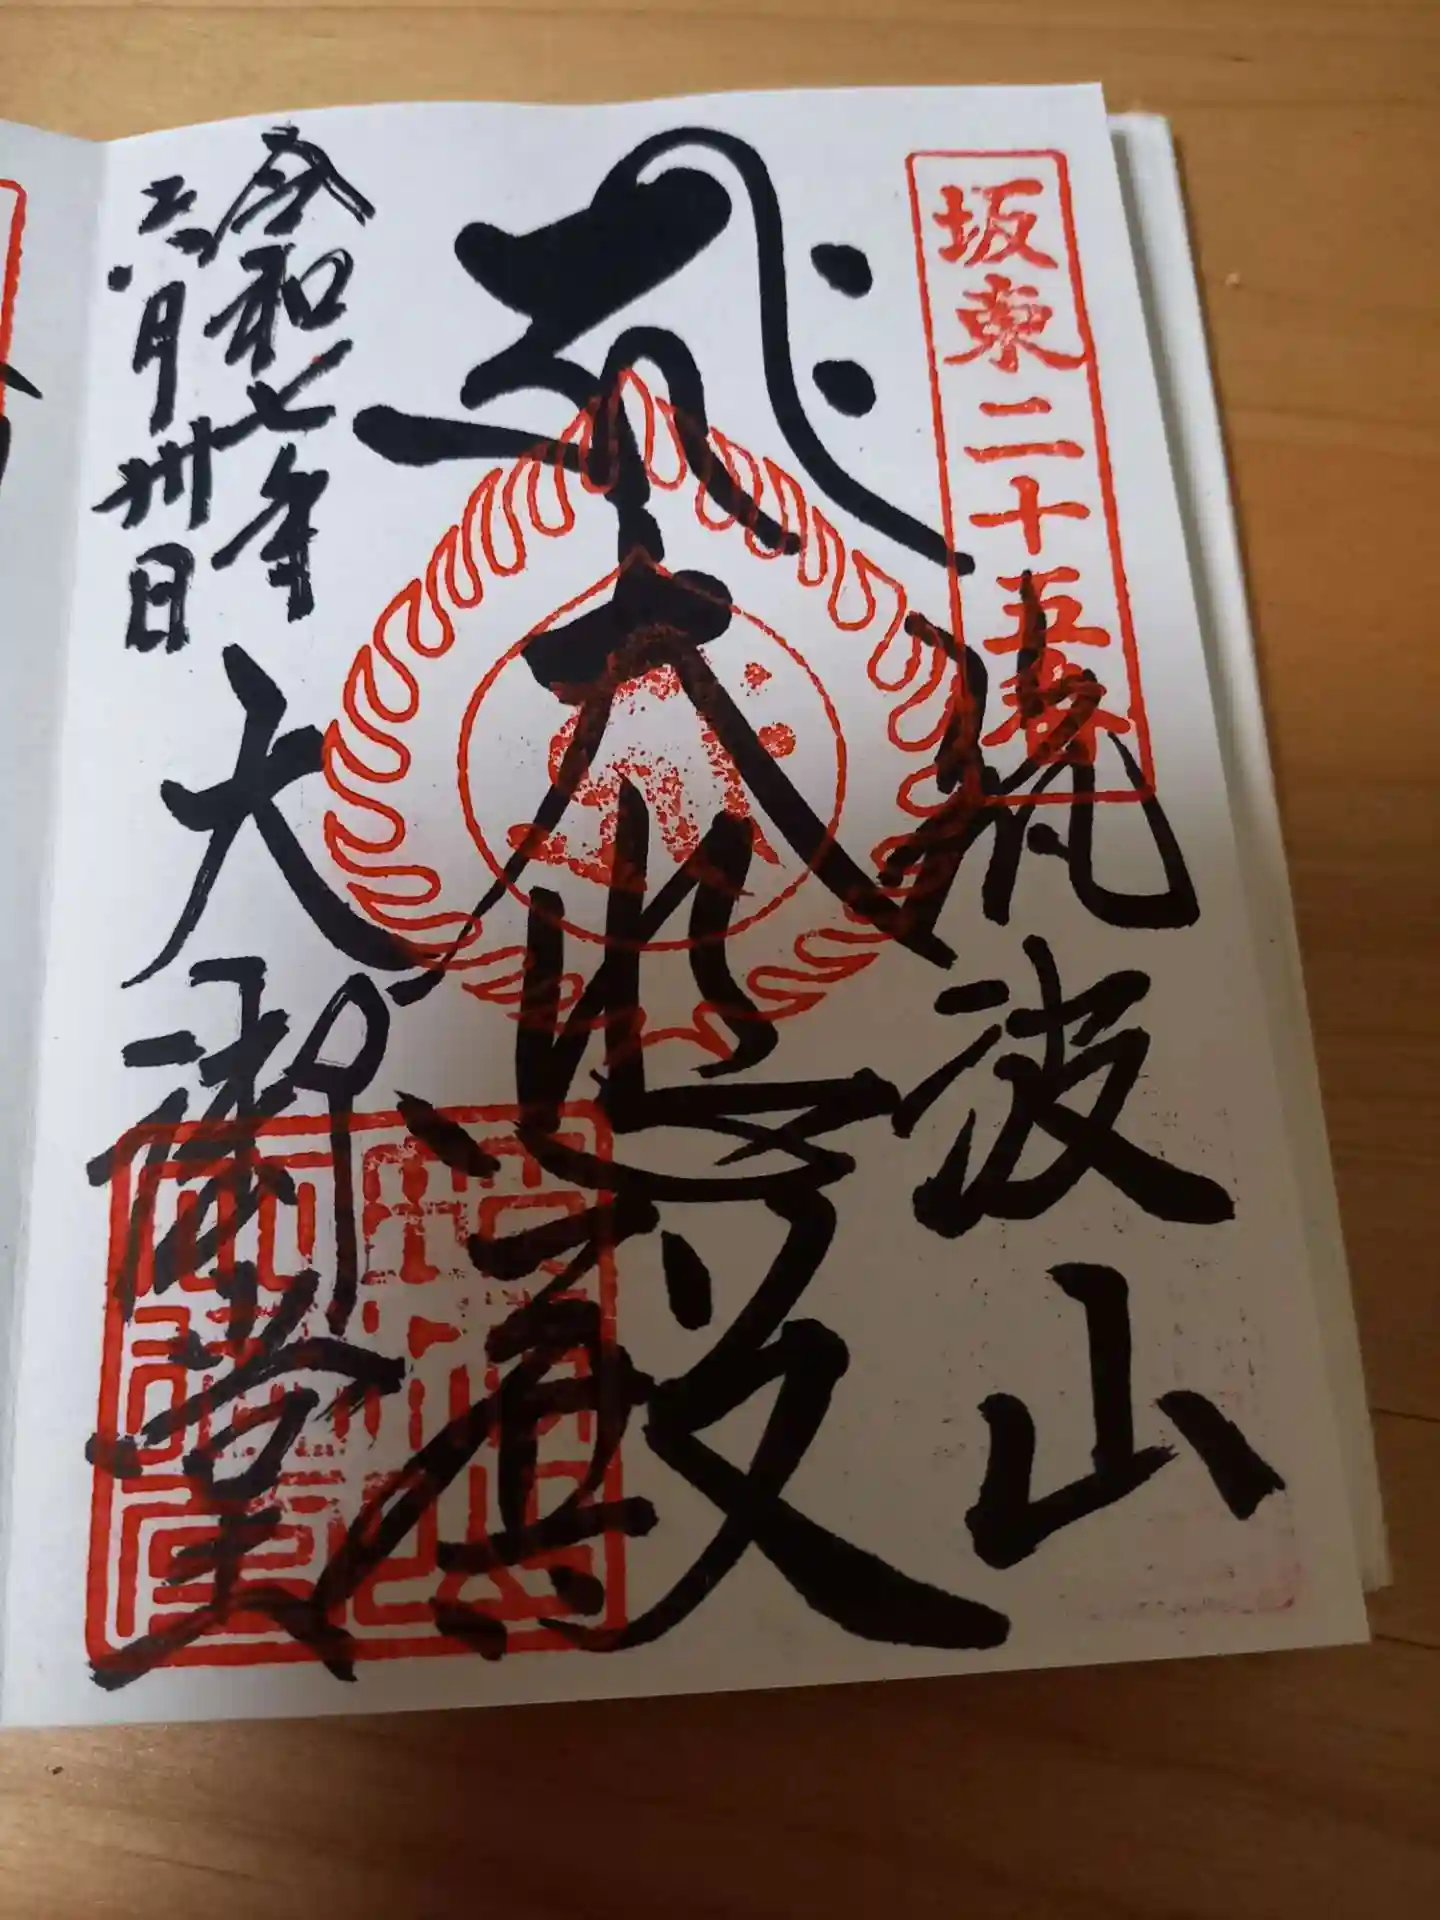 坂東二十五番
筑波山
大悲殿
令和七年
六月卅日
大御堂